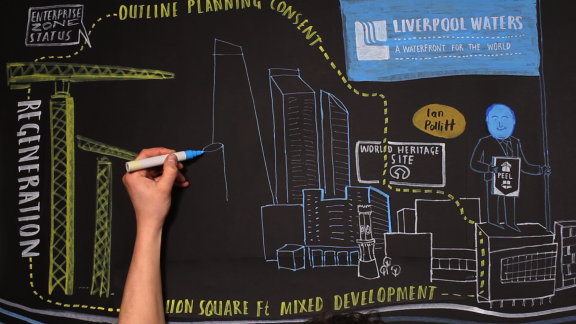 ENTERPRISE
ZONE
STATUS
OUTLINE PLANNING CONSENT
LIVERPOOL WATERS
A WATERFRONT FOR THE WORLD
REGENERATION
Ian
Pollitt
WORLD HERITAGE
SITE
PEEL
SQUARE Ft MIXED DEVELOPMENT